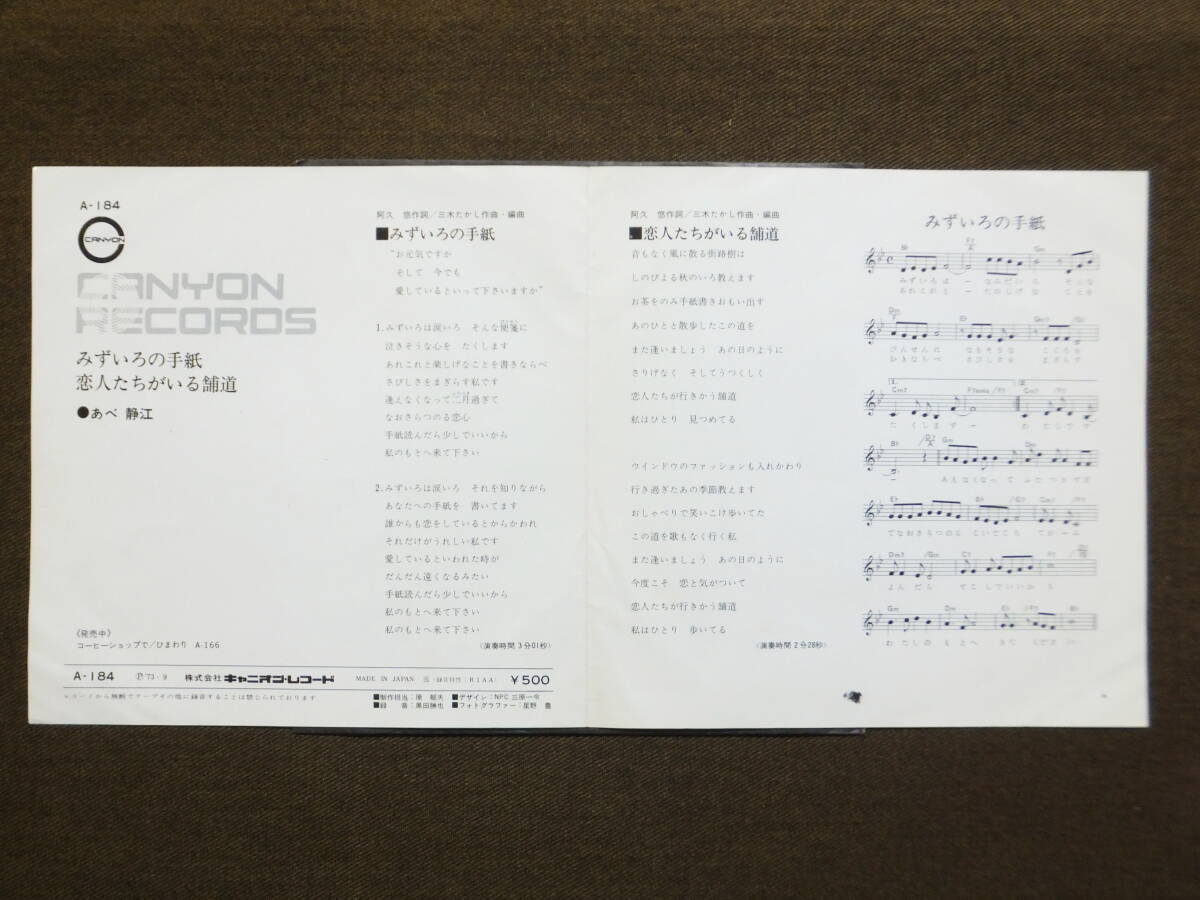 A-184
CANYON
CANYON
RECORDS
みずいろの手紙
恋人たちがいる舗道
●あべ 静江
《発売中》
コーヒーショップで/ひまわり A-166
阿久 悠作詞/三木たかし作曲・編曲
■みずいろの手紙
“お元気ですか
そして 今でも
愛しているといって下さいますか”
1.みずいろは涙いろ そんな便箋に
泣きそうな心を たくします
あれこれと楽しげなことを書きならべ
さびしさをまぎらす私です
逢えなくなって二月過ぎて
なおさらつのる恋心
手紙読んだら少しでいいから
私のもとへ来て下さい
2.みずいろは涙いろ それを知りながら
あなたへの手紙を 書いてます
誰からも恋をしているとからかわれ
それだけがうれしい私です
愛しているといわれた時が
だんだん遠くなるみたい
手紙読んだら少しでいいから
私のもとへ来て下さい
私のもとへ来て下さい
(演奏時間3分01秒)
A-184 Ⓟ'73・9 株式会社キャニオン・レコード MADE IN JAPAN (録音特性:RIAA) ¥500
レコードから無断でテープその他に録音することは禁じられております
■制作担当:原 郁夫 ■デザイン:NPC 三原一令
■録 音:黒田勝也 ■フォトグラファー:星野 豊
阿久 悠作詞/三木たかし作曲・編曲
■恋人たちがいる舗道
音もなく風に散る街路樹は
しのびよる秋のいろ教えます
お茶をのみ手紙書きおもい出す
あのひとと散歩したこの道を
また逢いましょう あの日のように
さりげなく そしてうつくしく
恋人たちが行きかう舗道
私はひとり 見つめてる
ウインドウのファッションも入れかわり
行き過ぎたあの季節教えます
おしゃべりで笑いこけ歩いてた
この道を歌もなく行く私
また逢いましょう あの日のように
今度こそ 恋と気がついて
恋人たちが行きかう舗道
私はひとり 歩いてる
(演奏時間2分28秒)
みずいろの手紙
みずいろは ー なみだいろ そんな
あれこれと ー たのしげな ことを
びんせんに なきそうな こころを
かきならべ さびしさを まぎらす
たくします ー わたしです
ー あえなくなって ふたつきすぎ
てなおさらつのる こいごころ てがーみ
よんだら すこしでいいから
わたしの もとへ きてください